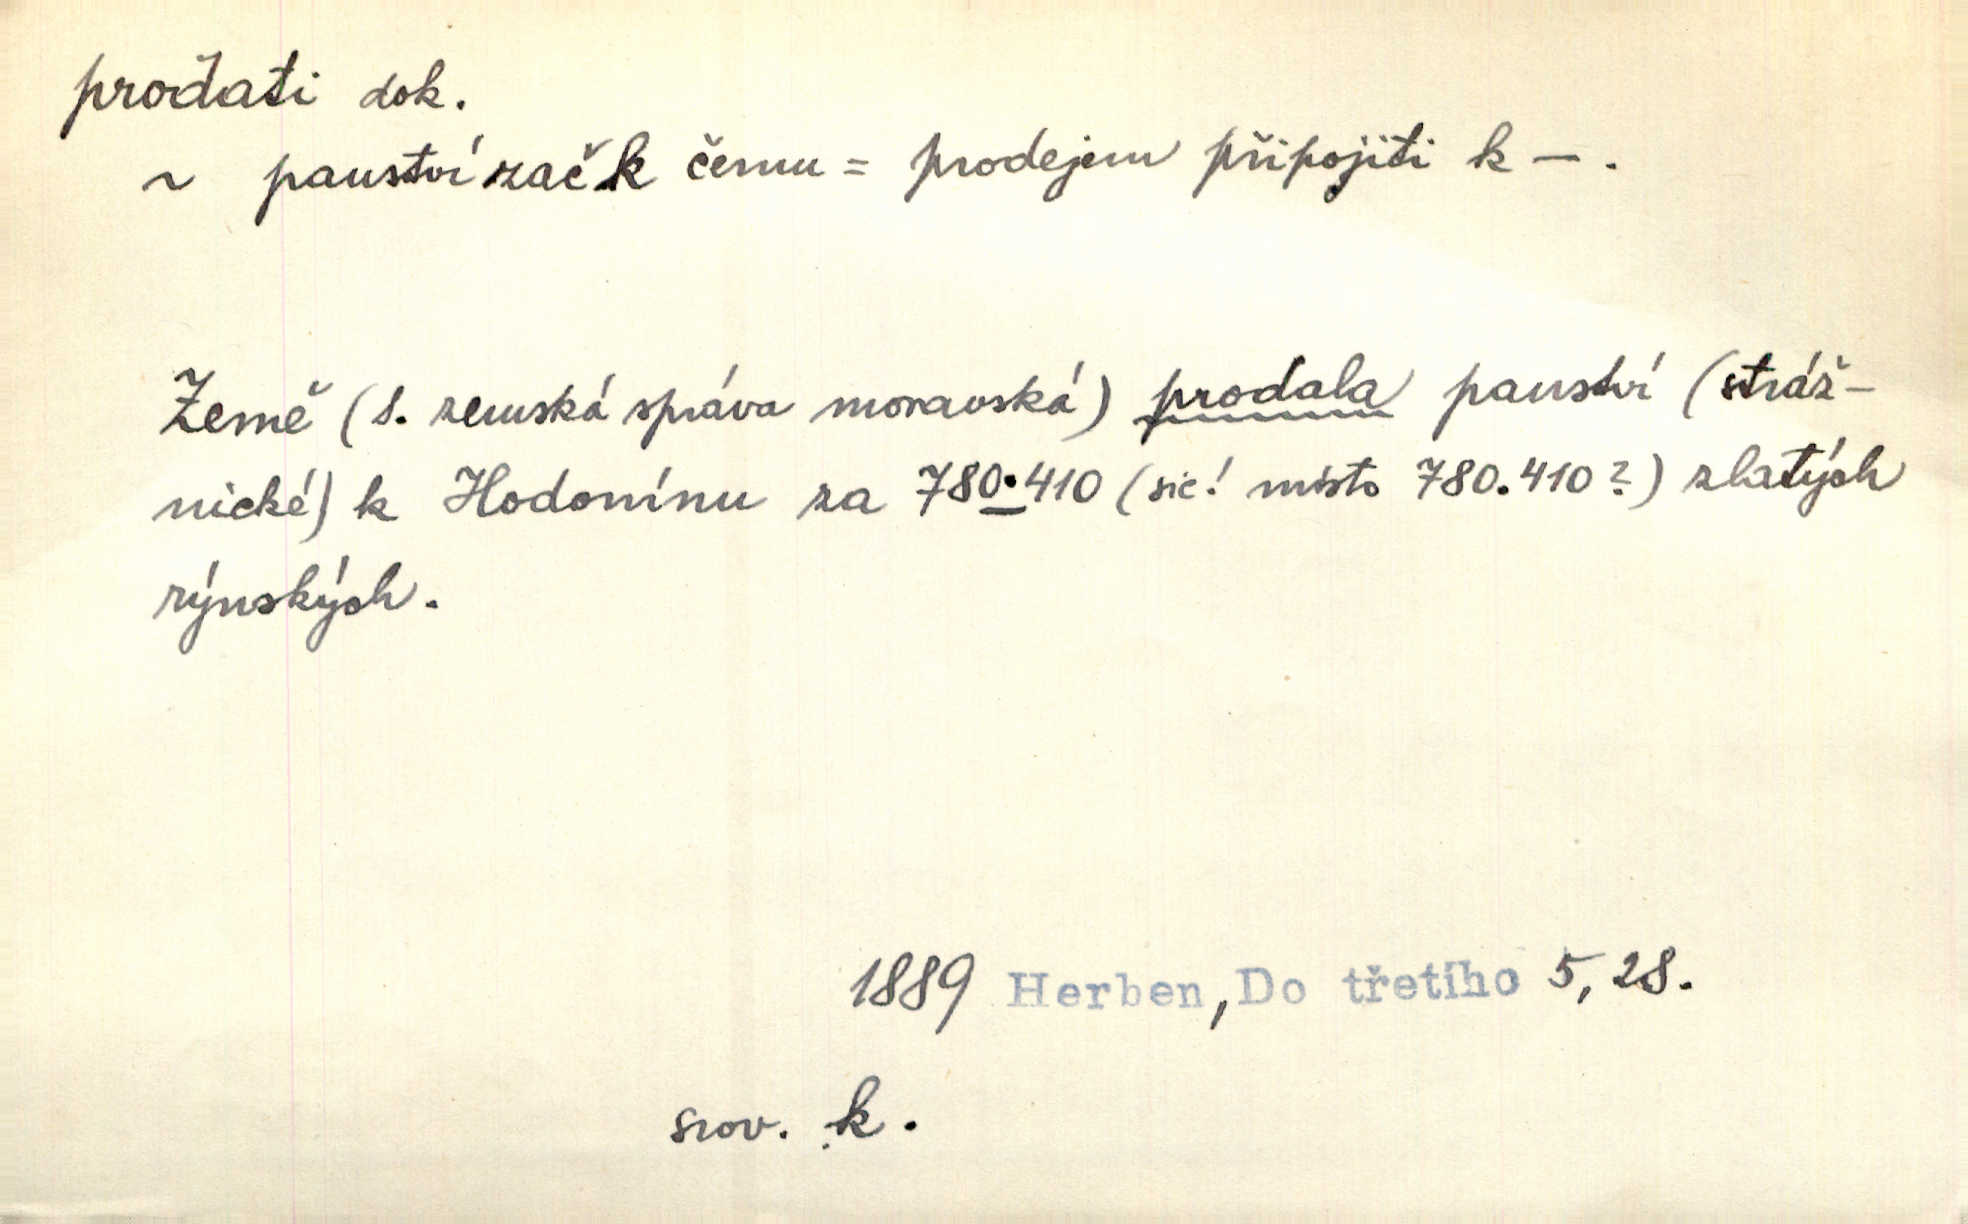 prodati dok.
~ panství zač k čemu = prodejem připojiti k — .
Země (t. zemská správa moravská) prodala panství (stráž-
nické) k Hodonínu za 780.410 (sic! místo 780.410?) zlatých
rýnských.
1889 Herben, Do třetího 5, 28.
srov. k.